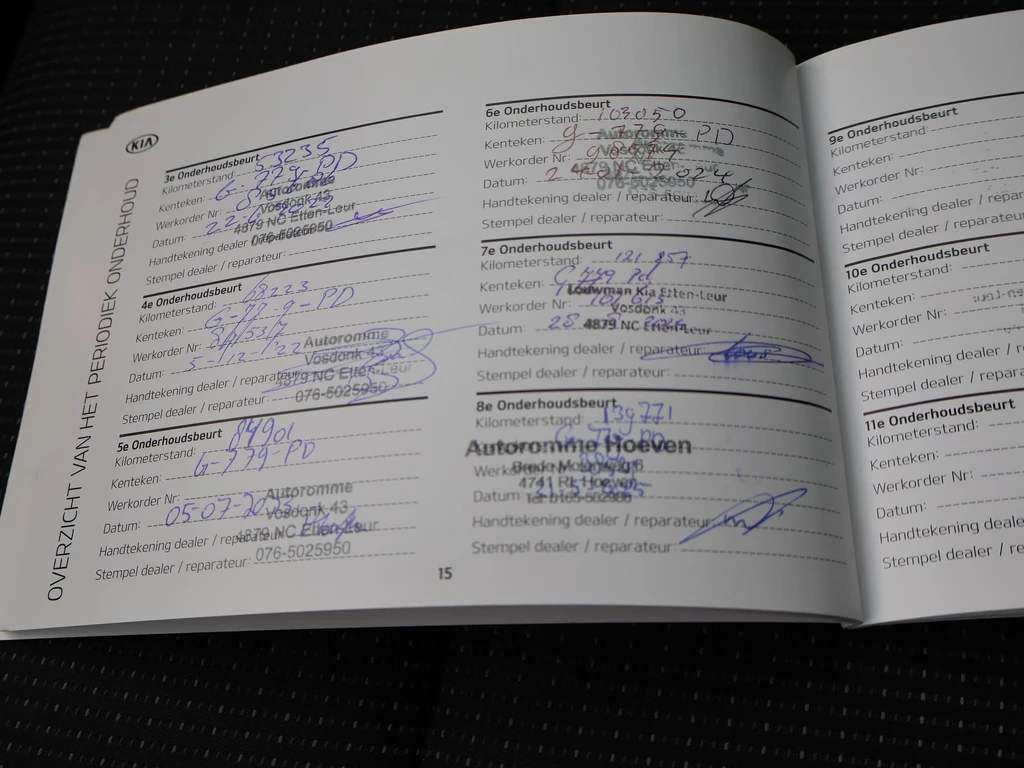 OVERZICHT VAN HET PERIODIEK ONDERHOUD
KIA
3e Onderhoudsbeurt
Kilometerstand: 53235
Kenteken: G-779-PD
Werkorder Nr:
Datum:
Handtekening dealer / reparateur:
Stempel dealer / reparateur:
Autoromme
Vosdonk 43
4879 NC Etten-Leur
076-5025950
4e Onderhoudsbeurt
Kilometerstand: 68223
Kenteken: G-779-PD
Werkorder Nr:
Datum: 5-12-'22
Handtekening dealer / reparateur:
Stempel dealer / reparateur:
Autoromme
Vosdonk 43
4879 NC Etten-Leur
076-5025950
5e Onderhoudsbeurt
Kilometerstand: 84901
Kenteken: G-779-PD
Werkorder Nr:
Datum: 05-07-2023
Handtekening dealer / reparateur:
Stempel dealer / reparateur:
Autoromme
Vosdonk 43
4879 NC Etten-Leur
076-5025950
6e Onderhoudsbeurt
Kilometerstand: 103050
Kenteken: G-779-PD
Werkorder Nr:
Datum:
Handtekening dealer / reparateur:
Stempel dealer / reparateur:
Autoromme
Vosdonk 43
4879 NC Etten-Leur
076-5025950
7e Onderhoudsbeurt
Kilometerstand: 121 857
Kenteken: G 779 Pd
Werkorder Nr:
Datum: 28
Handtekening dealer / reparateur:
Stempel dealer / reparateur:
Louwman Kia Etten-Leur
Vosdonk 43
4879 NC Etten-Leur
8e Onderhoudsbeurt
Kilometerstand: 139771
Kenteken:
Werkorder Nr:
Datum:
Handtekening dealer / reparateur:
Stempel dealer / reparateur:
Autoromme Hoeven
4741 RL Hoeven
15
9e Onderhoudsbeurt
Kilometerstand:
Kenteken:
Werkorder Nr:
Datum:
Handtekening dealer
Stempel dealer / reparateur
10e Onderhoudsbeurt
Kilometerstand:
Kenteken:
Werkorder Nr:
Datum:
Handtekening dealer / r
Stempel dealer / repara
11e Onderhoudsbeurt
Kilometerstand:
Kenteken:
Werkorder Nr:
Datum:
Handtekening deale
Stempel dealer / re